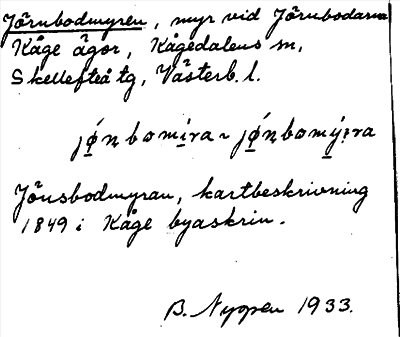 Jörnbodmyren, myr vid Jörnbodarna
Kåge ägor, Kågedalens sn,
Skellefteå tg, Västerb. l.
jǿnbomira ~ jǿnbomýra
Jönsbodmyran, kartbeskrivning
1849 i Kåge byaskrin.
B. Nyman 1933.